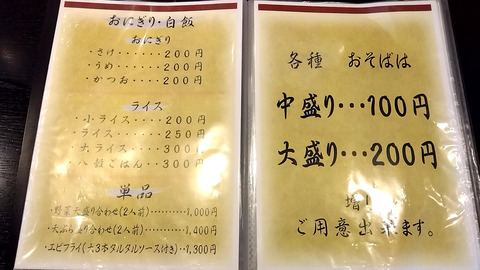 おにぎり・白飯
おにぎり
・さけ・・・・・・・200円
・うめ・・・・・・・200円
・かつお・・・・・200円
ライス
・小ライス・・・・200円
・ライス・・・・・・250円
・大ライス・・・・300円
・八穀ごはん・・300円
単品
・野菜天盛り合わせ(2人前)・・・・・・・・・・1,000円
・天ぷら盛り合わせ(2人前)・・・・・・・・・・1,400円
・エビフライ(大3本タルタルソース付き)・・1,300円
各種 おそばは
中盛り・・・100円
大盛り・・・200円
増し
ご用意出来ます。